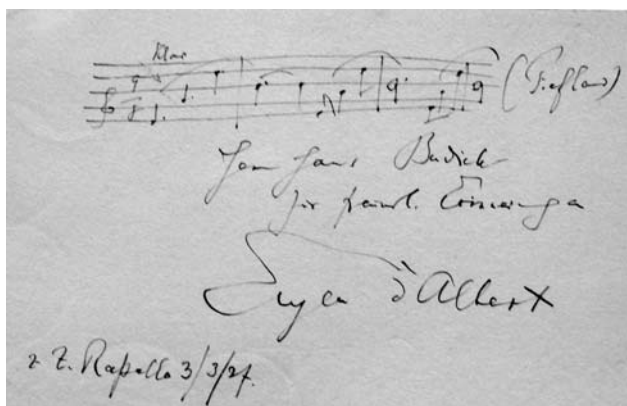 Klar.
(Tiefland)
Herrn Hans Budich
zur freundl. Erinnerung
Eugen d'Albert
z. Z. Rapallo 3/3/27.